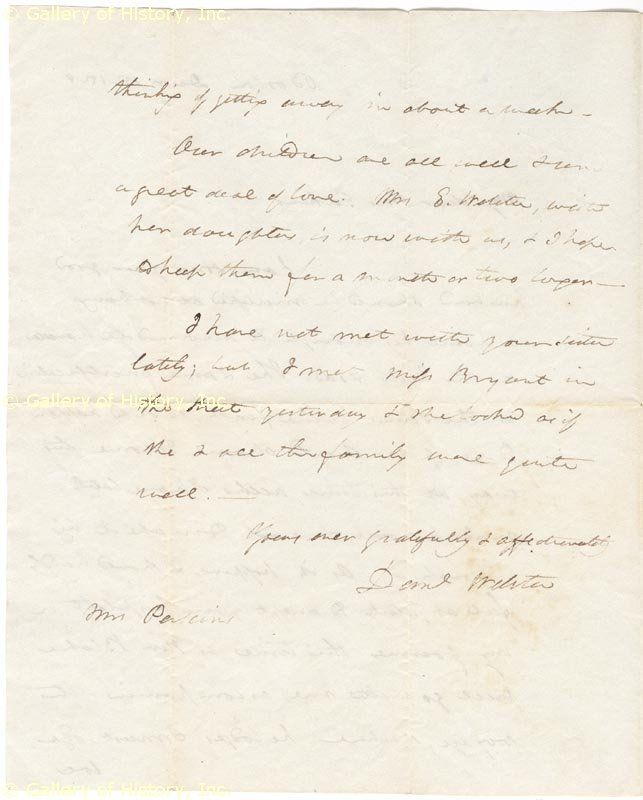 © Gallery of History, Inc.
thinking of getting away in about a week -
Our children are all well & send
a great deal of love. Mrs E. Webster, with
her daughter, is now with us, & I hope
to keep them for a month or two longer—
I have not met with your sister
lately; but I met Miss Bryant in
© Gallery of History, Inc.
the street yesterday & she looked as if
she & all the family were quite
well. —
Yours ever gratefully & affectionately
Danl Webster
Mrs Perkins
© Gallery of History, Inc.